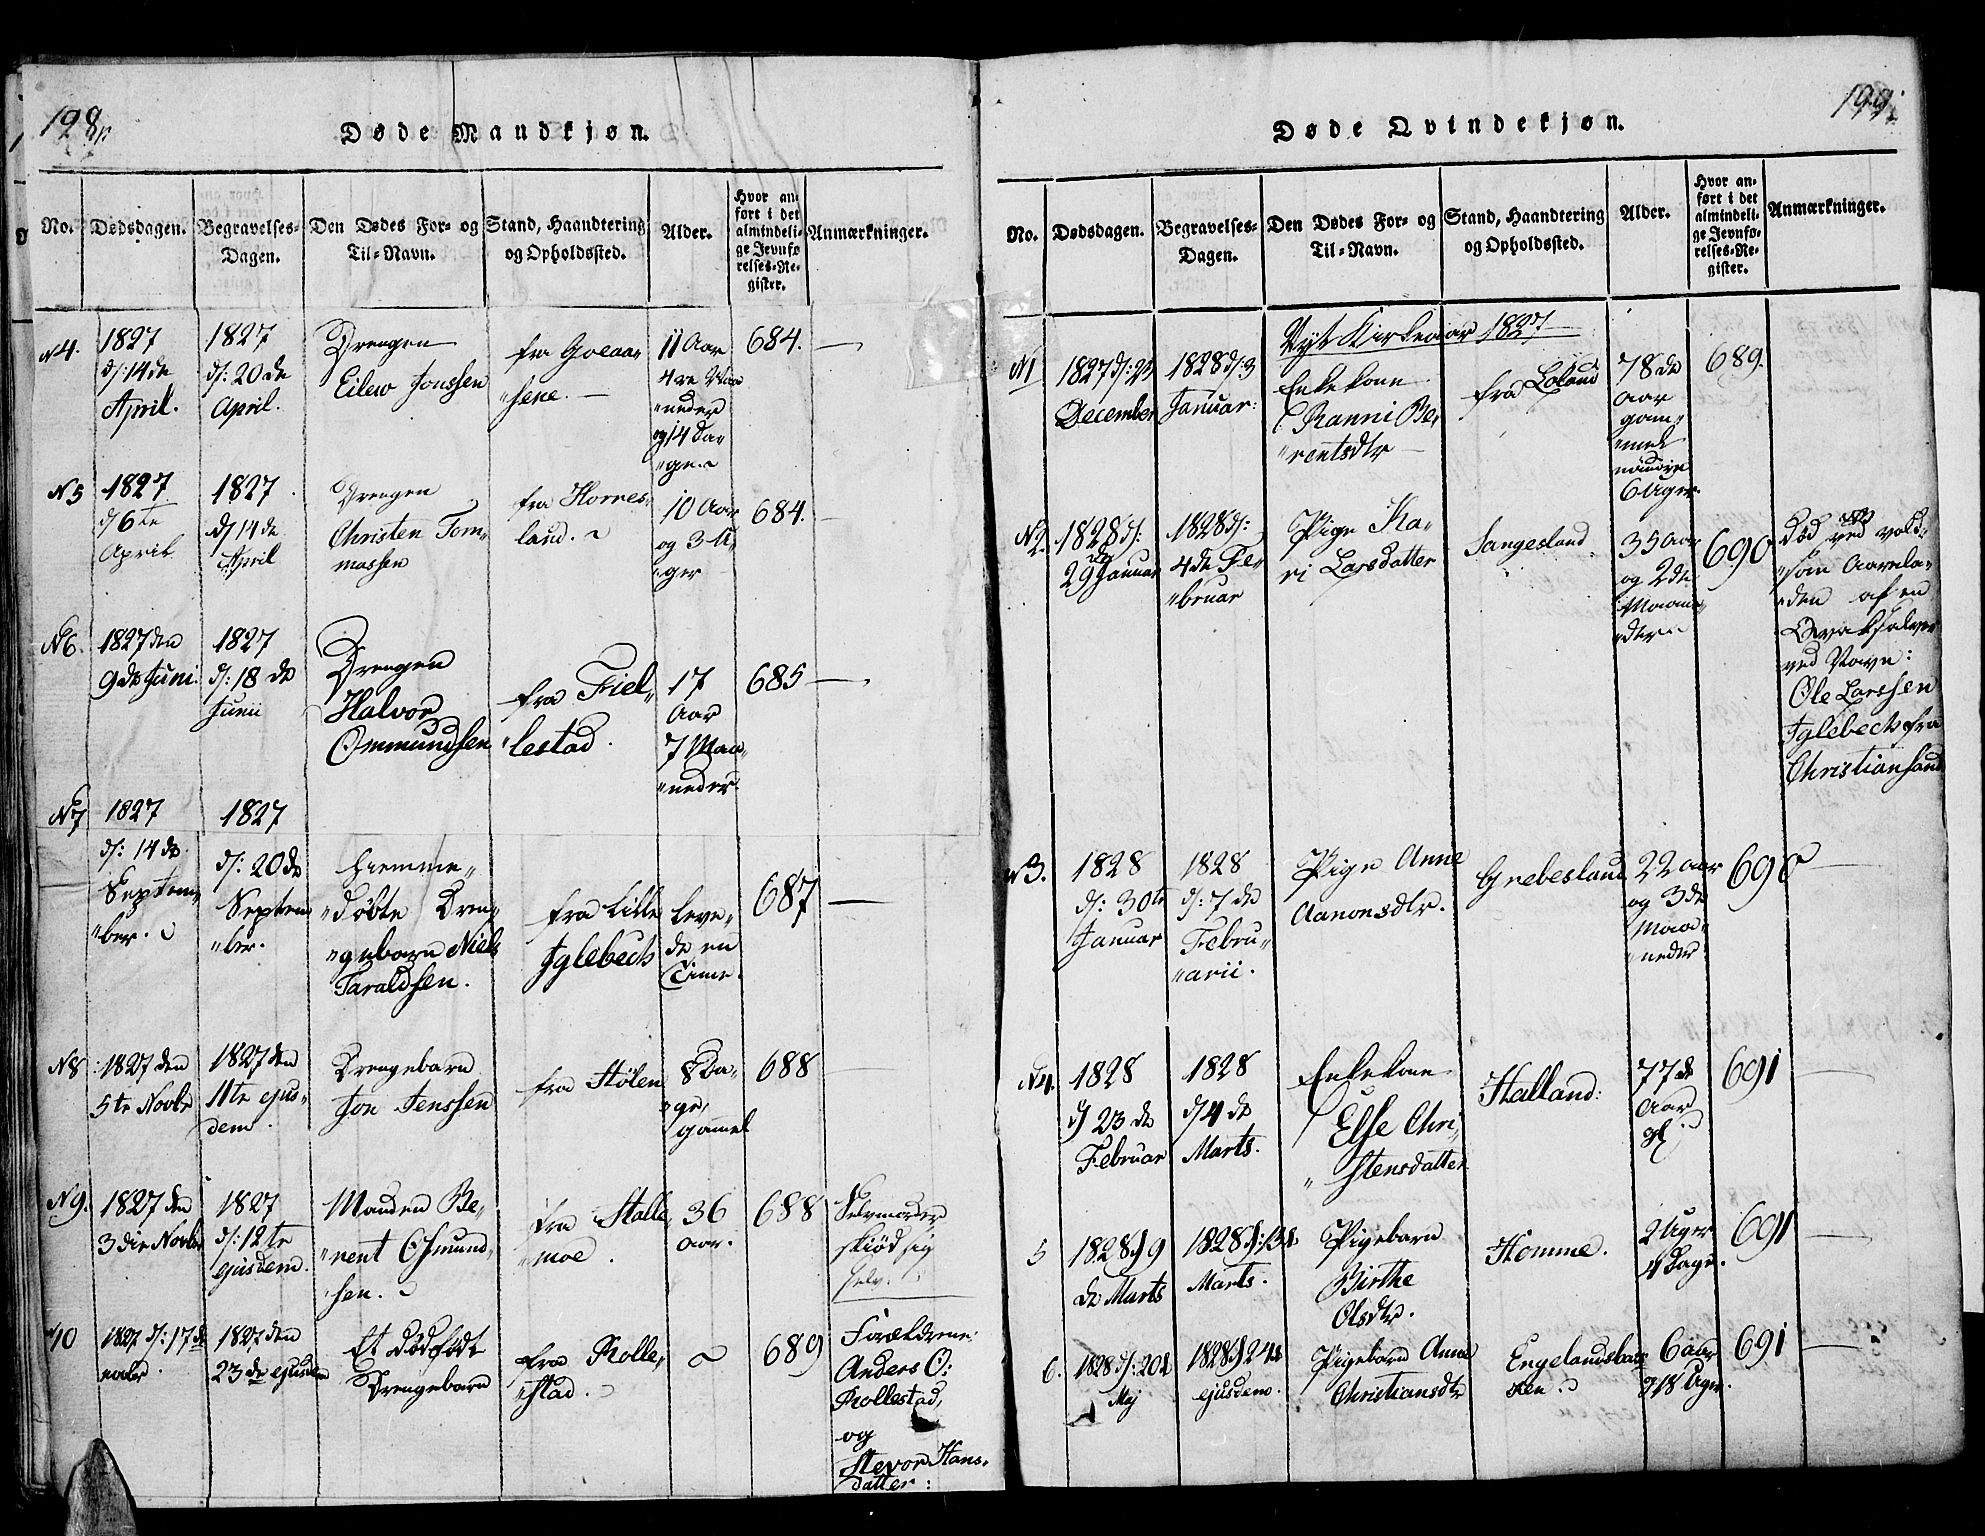 198.
Døde Mandkjøn.
No.
Dødsdagen.
Begravelses-
Dagen.
Den Dødes For- og
Til-Navn.
Stand, Haandtering
og Opholdssted.
Alder.
Hvor an-
ført i det
almindeli-
ge Jevnfø
relses-Re-
gister.
Anmærkninger.
N4.
1827
d: 14de
April.
1827
d: 20de
April.
Drengen
Eilew Jonssen
fra Goeaa-
sene. —
11 Aar
4re Maa
neder
og 14 Da-
ge.
684.
—
N5
1827
d 6te
April
1827
d 14de
April
Drengen
Christen Tom-
massen
fra Hornes-
land.
10 Aar
og 3 U-
ger
684.
—
N6.
1827 den
9de Juni.
1827
d: 18de
Junii
Drengen
Halvor
Ommundsen
fra Fiel-
lestad.
17
Aar
7 Maa-
neder.
685
—
N7
1827
d: 14de
Septem-
ber.
1827
d: 20de
Septem
ber.
Hiemme-
døbte Dren-
gebarn Niels
Taraldsen.
fra Lille
Iglebech
Leve-
de en
Time.
687
—
N8
1827 den
5te Novbr
1827 den
11te ejus-
dem.
Drengebarn
Jon Jenssen
fra Hølen
8 Da-
ge
gamel
688
—
N9.
1827 den
3die Novbr
1827
d: 12te
ejusdem.
Manden Be-
rent Osmund-
sen.
fra Stalle
moe.
36
Aar.
688
Selvmorder
skiød sig
selv.
10
1827 d: 17de
novbr.
1827 den
23de ejusdem
Et dødfødt
Drengebarn
fra Rolle-
stad.
689
Forældrene:
Anders O:
Rollestad,
og
Stevor Hans-
datter:
199.
Døde Qvindekjøn.
No.
Dødsdagen.
Begravelses-
Dagen.
Den Dødes For- og
Til-Navn.
Stand, Haandtering
og Opholdssted.
Alder.
Hvor an-
ført i det
almindeli-
ge Jevnfø-
relses-Re-
gister.
Anmærkninger.
Nyt Kirkeaar 1827
N1
1827 d:
December
1828 d: 3
Januar:
Enkekone
Ranni Be-
rentsdtr
fra Loland
78de
Aar
gam-
mel
6 Uger.
689.
N2.
1828 d:
29 Januar
1828 d:
4de Fe-
bruar
Pige Ka-
ri Larsdatter
Sangesland
35 Aar
og 2de
Maane
der
690
Død ved vold-
som Aarela-
den af en
Qvaksalver
ved Navn:
Ole Larssen
Iglebech fra
Christiansand
N3.
1828
d: 30te
Januar
1828
d: 7de
Febru-
arii.
Pige Anne
Aanonsdtr.
Grebesland
22 aar
og 3de
Maa-
neder
690
—
N4.
1828
d 23de
Februar
1828
d 4de
Marts.
Enkekone
Else Chri-
stensdatter
Halland:
77de
Aar
gl.
691
—
5
1828 d 9
de Marts
1828 d: 13de
Marts.
Pigebarn
Birthe
Olsdtr.
Homme.
2 Uger
4 Dage.
691
—
6.
1828 d: 20de
Maj
1828 d 24de
ejusdem.
Pigebarn Anne
Christiansdtr
Engelandsbak
ken
6 aar
og 18 Uger.
691
—